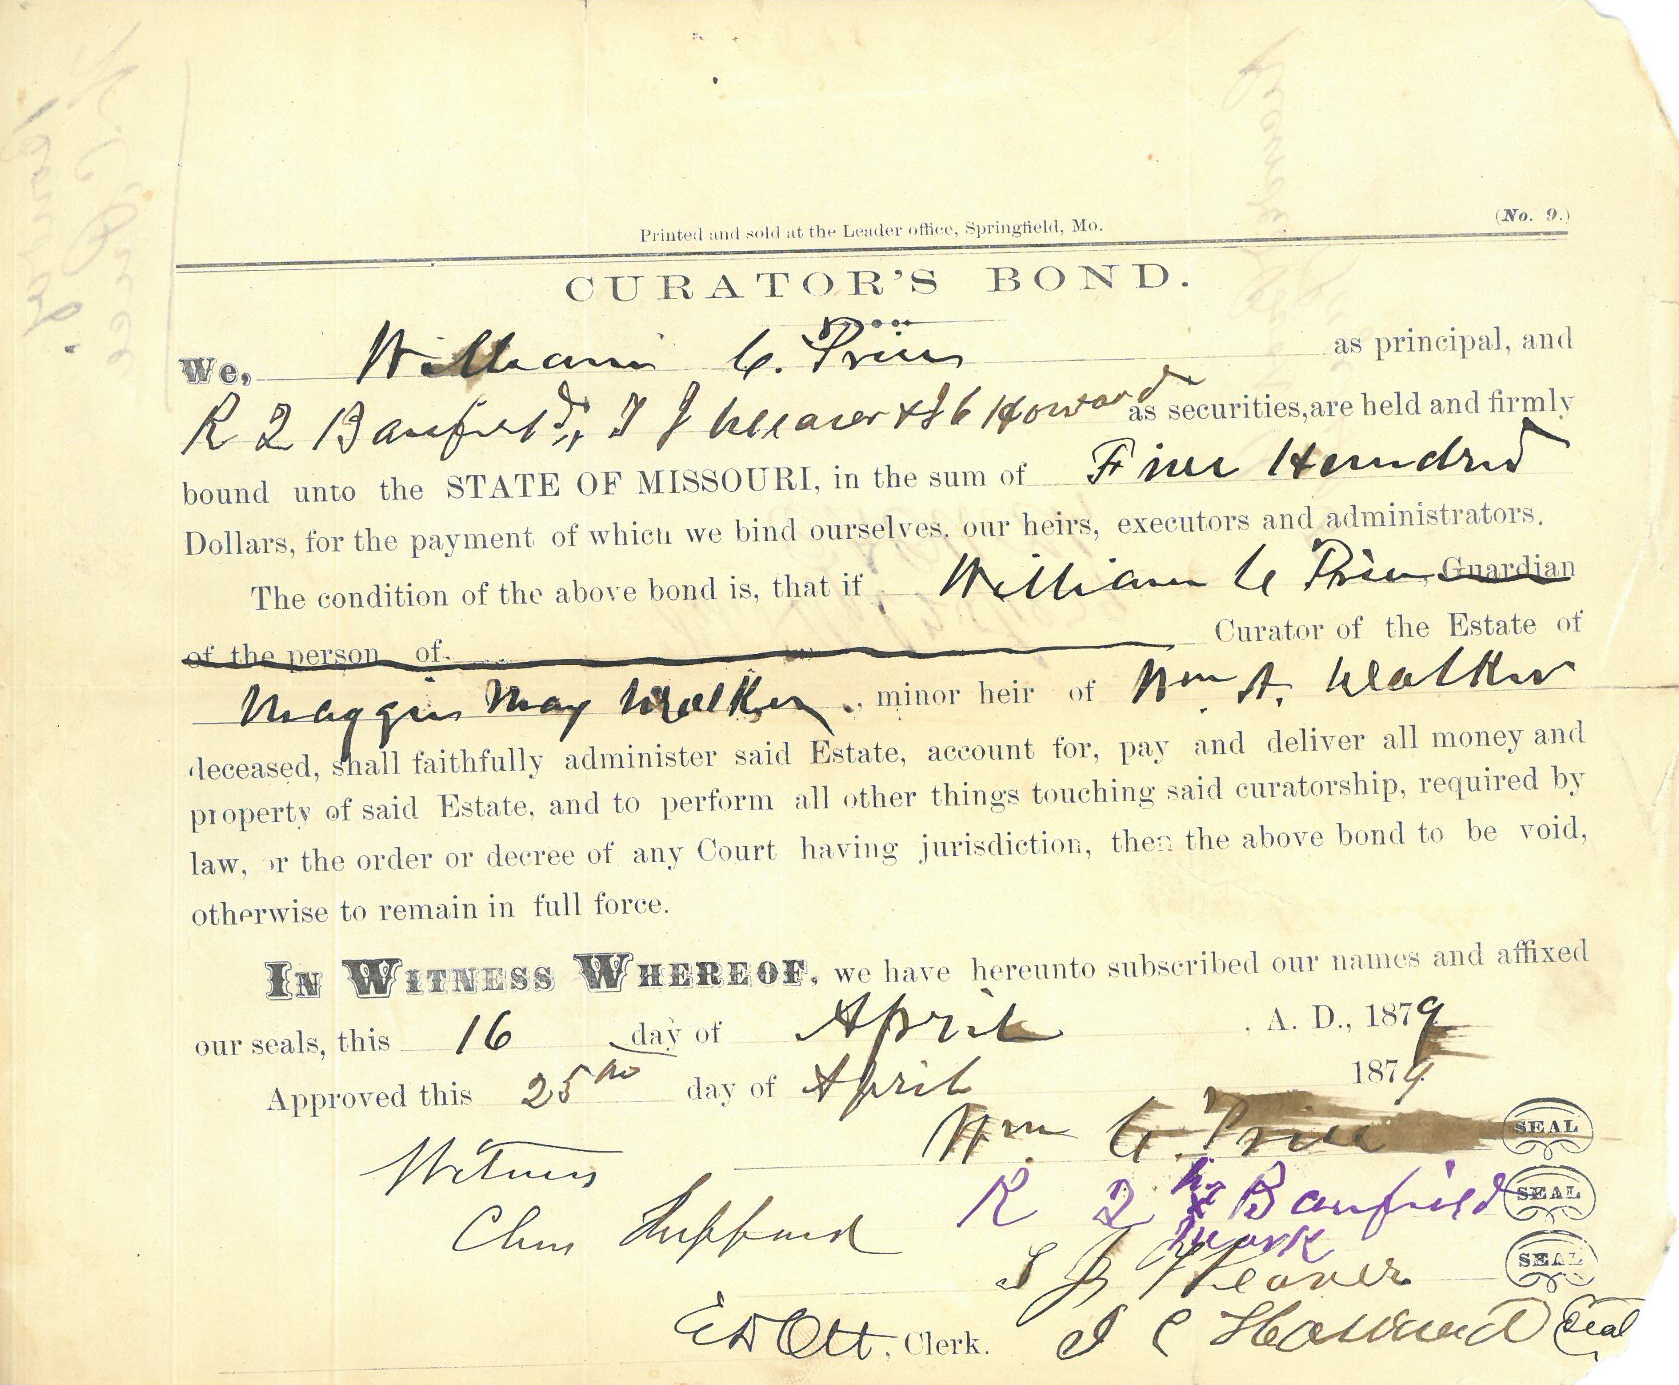 Printed and sold at the Leader office, Springfield, Mo.
(No. 9.)
CURATOR'S BOND.
We, William C. Price as principal, and
R Q Banfield, T J Weaver & J C Howard as securities, are held and firmly
bound unto the STATE OF MISSOURI, in the sum of Five Hundred
Dollars, for the payment of which we bind ourselves, our heirs, executors and administrators.
The condition of the above bond is, that if William C Price, Guardian
of the person of Curator of the Estate of
Maggie May Walker, minor heir of Wm A. Walker
deceased, shall faithfully administer said Estate, account for, pay and deliver all money and
property of said Estate, and to perform all other things touching said curatorship, required by
law, or the order or decree of any Court having jurisdiction, then the above bond to be void,
otherwise to remain in full force.
IN WITNESS WHEREOF, we have hereunto subscribed our names and affixed
our seals, this 16 day of April A. D., 1879
Approved this 25 day of April 1879
Wm C. Price SEAL
Witness
R Q his x mark Banfield SEAL
Chas Sheppard
S J Weaver SEAL
E D Ott, Clerk.
J C Howard Seal